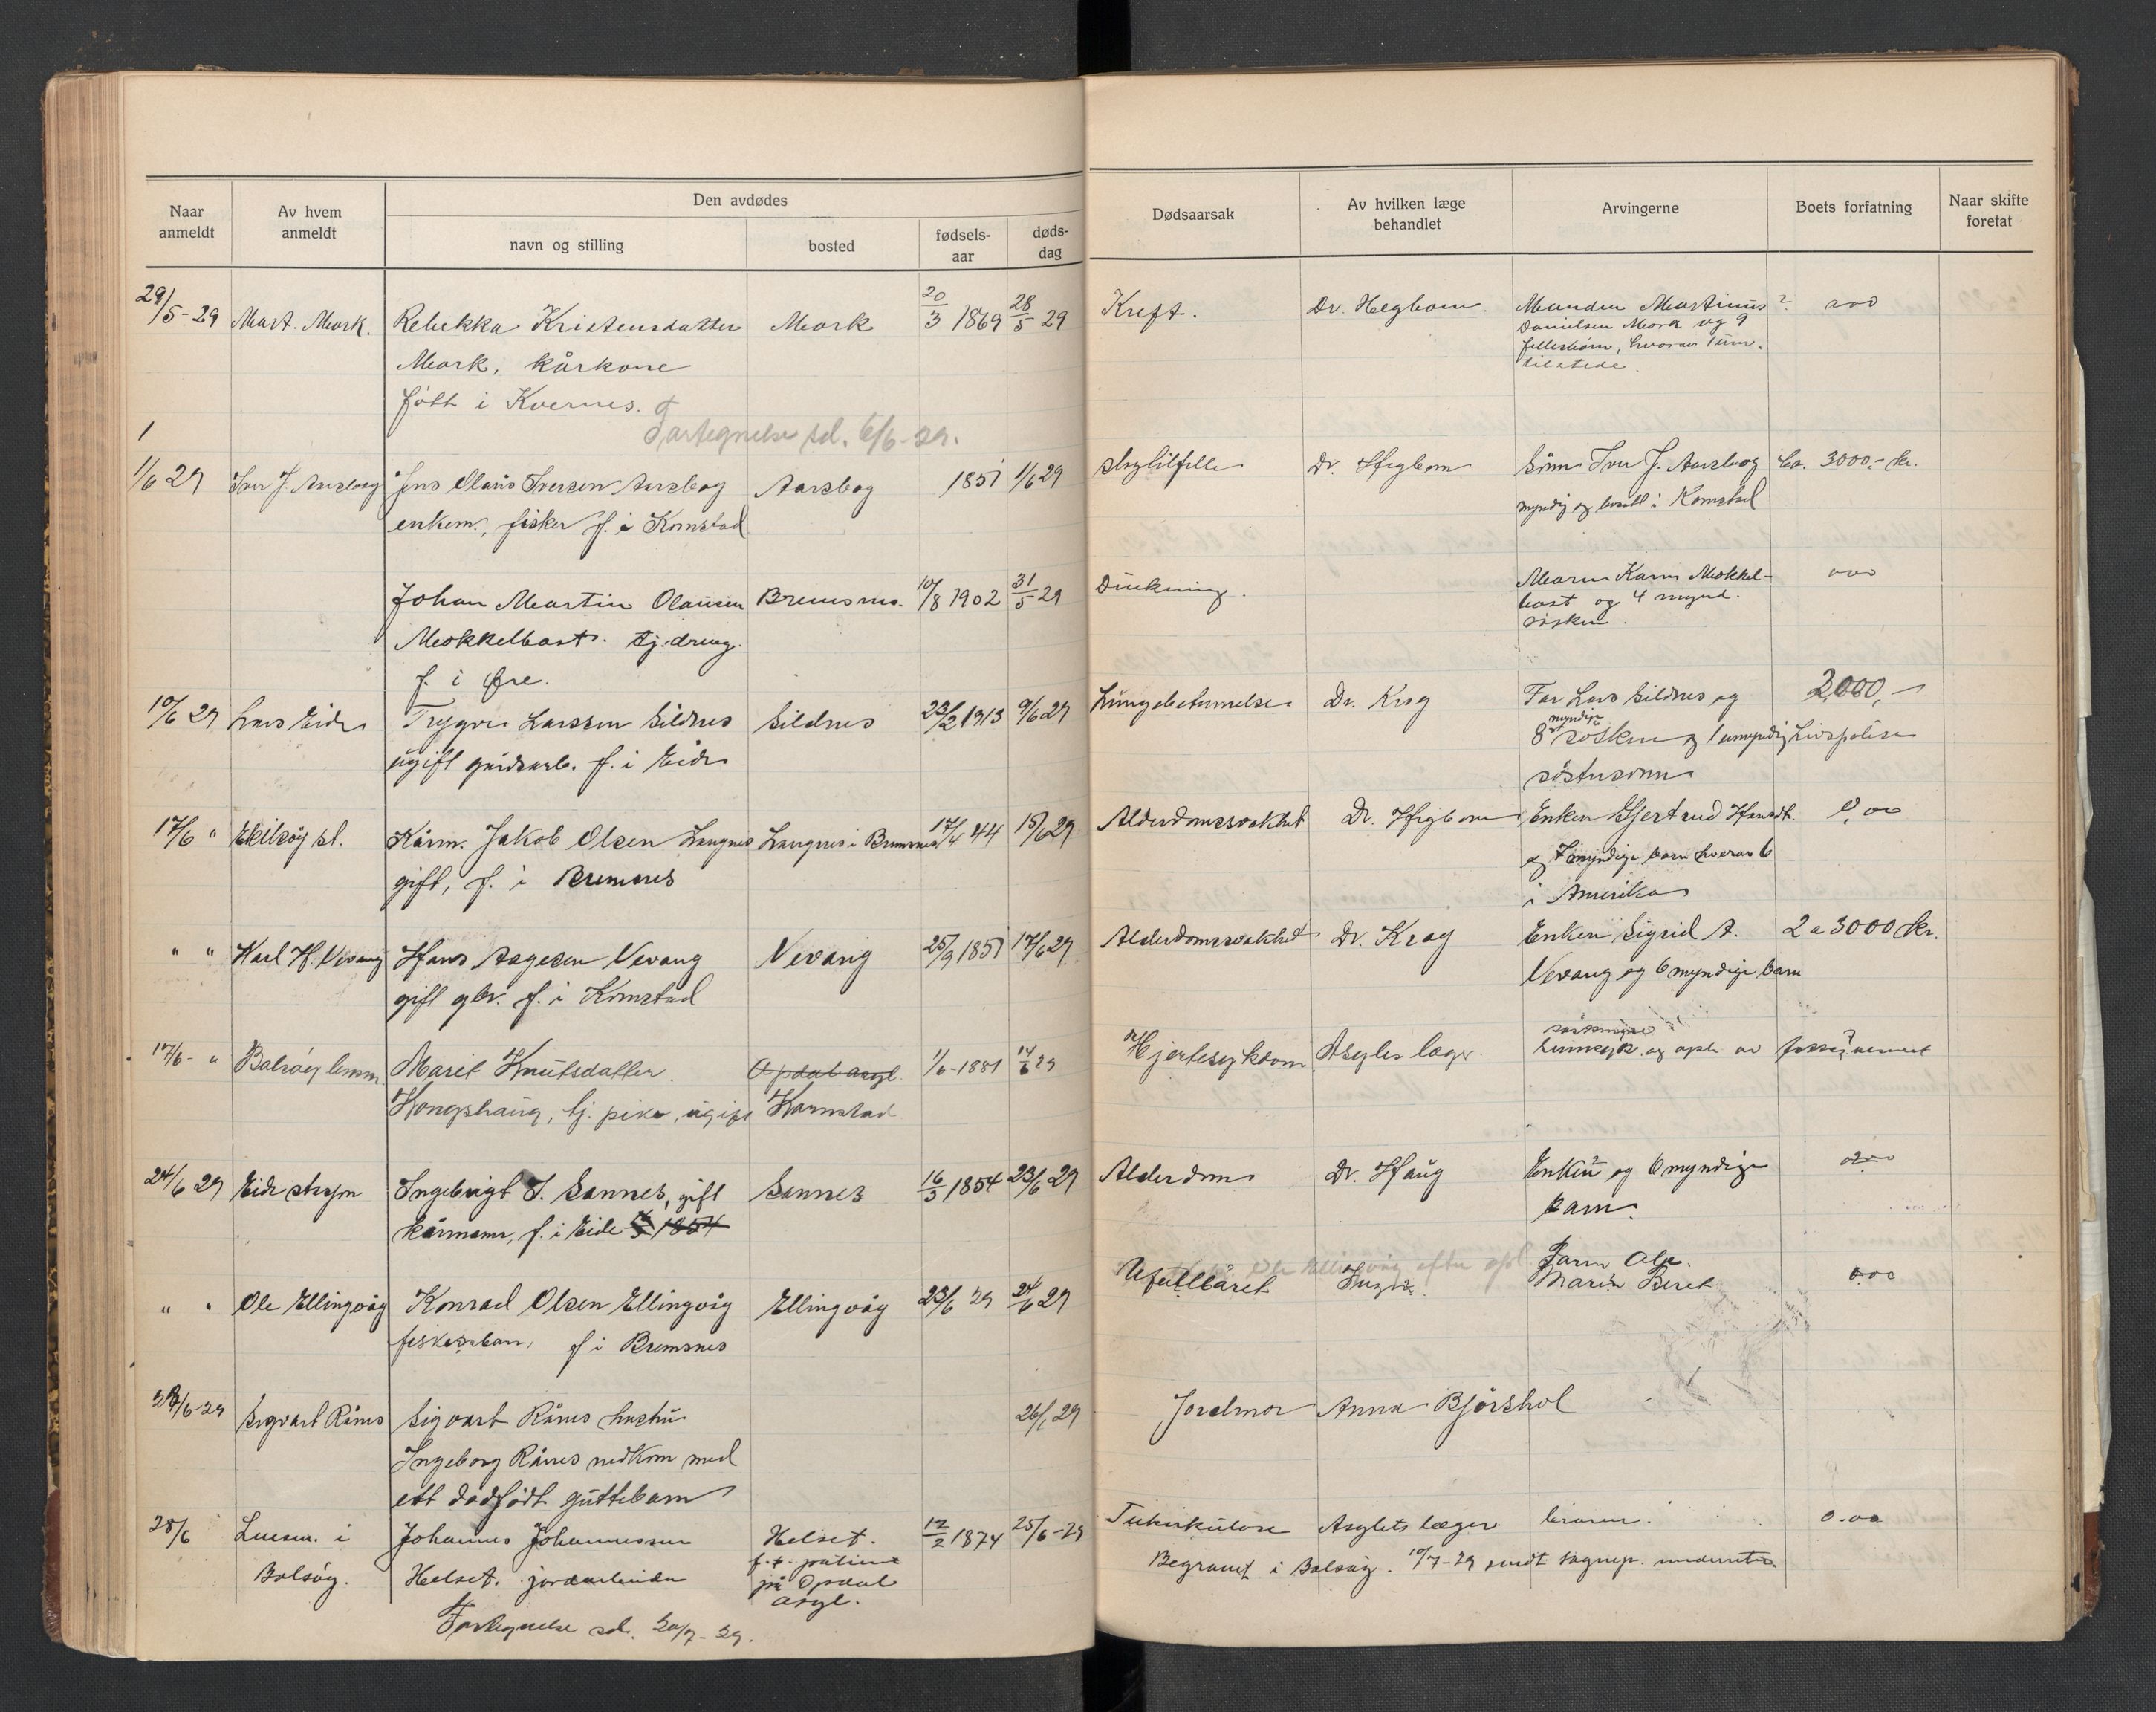 Naar anmeldt
Av hvem anmeldt
Den avdødes
navn og stilling
bosted
fødsels-aar
døds-dag
Dødsaarsak
Av hvilken læge behandlet
Arvingerne
Boets forfatning
Naar skifte foretat
29/5-29 Mart. Mork. Rebekka Kristensdatter Mork 20/3 1869 28/5 29 Kreft. Dr. Hegbom. Manden Martinus ? 000
Mork, kårkone Danielsen Mork og 9
født i Kvernes. fellesbarn, hvorav 1 um.
tilstede.
Fortegnelse sd. 6/6-29.
1
1/6 29 Iver J Aarsbog Jens Olaus Iversen Aarsbog Aarsbog 1851 1/6 29 slagtilfelle Dr. Hegbom Sønn Iver J. Aarsbog ca. 3000,- kr.
enkem., fisker f. i Kornstad myndig og bosatt i Kornstad
Johan Martin Olausen Bremsnes. 10/8 1902 31/5 29 Drukning. Maren Karen Mokkel- 000
Mokkelbost. tj.dreng. bost og 4 mynd.
f. i Øre. søsken.
10/6 29 Lars Eide Trygve Larssen Sildnes Sildnes 23/2 1913 9/6 29 Lungebetennelse Dr. Krog Far Lars Sildnes og 2000,-
ugift gårdsarb. f. i Eide 8 myndige søsken og 1 umyndig Livspolise
søstersønn
17/6 " Ekilsøy st. Kårm. Jakob Olsen Langnes Langnes i Bremsnes 17/4 44 15/6 29 Alderdomssvakhet Dr. Hegbom Enken Gjertrud Hansdt. 0,00
gift, f. i Bremsnes og 7 myndige barn hvorav 6
i Amerika
" " Karl H. Vevang Hans Aagesen Vevang Vevang 25/9 1851 17/6 29 Alderdomssvakhet Dr. Krog Enken Sigrid A. 2 a 3000 kr.
gift gbr. f. i Kornstad Vevang og 6 myndige barn
17/6- " Bolsøy lensm. Marit Knutsdatter Opdal asyl. 1/6-1881 14/6 29 Hjertesykdom Asylets læge. sinnsyk og opt. av
Kongshaug, tj. pike, ugift Kornstad
24/6 29 Eide Ingebrigt J. Sannes, gift Sannes 16/3 1854 23/6 29 Alderdom Dr. Haug Enken og 6 myndige 000
kårmann, f. i Eide 1854 barn.
Ole Ellingvåg efter opl.
" " Ole Ellingvåg Konrad Olsen Ellingvåg Ellingvåg 23/6 29 24/6 29 Ufullbåret Ingen. Faren Ole. 0.00
fiskerbarn, f i Bremsnes Maren Beret
28/6-29 Sigvart Rånes Sigvart Rånes hustru 26/6 29 Jordmor Anna Bjørshol
Ingeborg Rånes nedkom med
ett dødfødt guttebarn
28/6 Lensm. i Johannes Johannessen Helset. 12/2 1874 25/6-29 Tuberkulose Asylets læge. 0.00
Bolsøy. Helset. jordarbeider f.t. patient
på Opdal
asyl.
Begravet i Bolsøy. 10/7-29 sendt sogнepr. underretn.
Fortegnelse sd. 20/7-29.